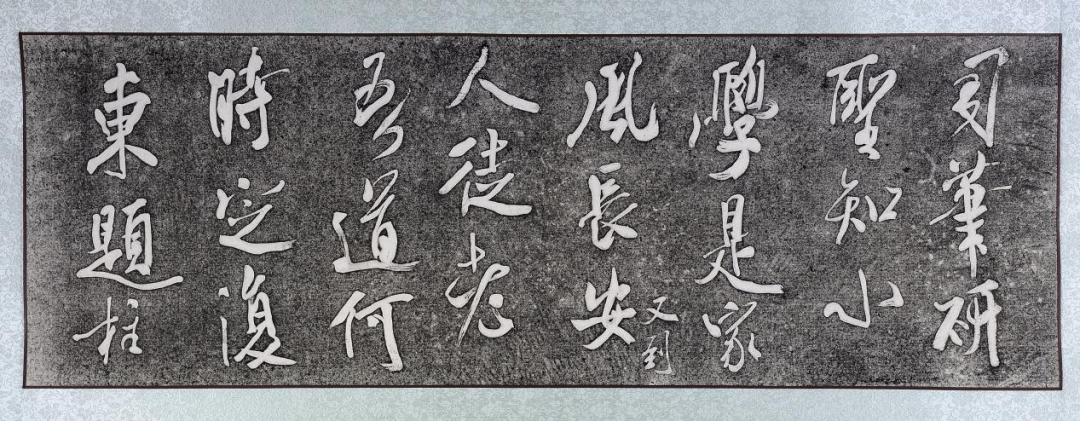 司筆研
聖知小
學是家
風長安又到
人徒老
吾道何
時定復
東題柱